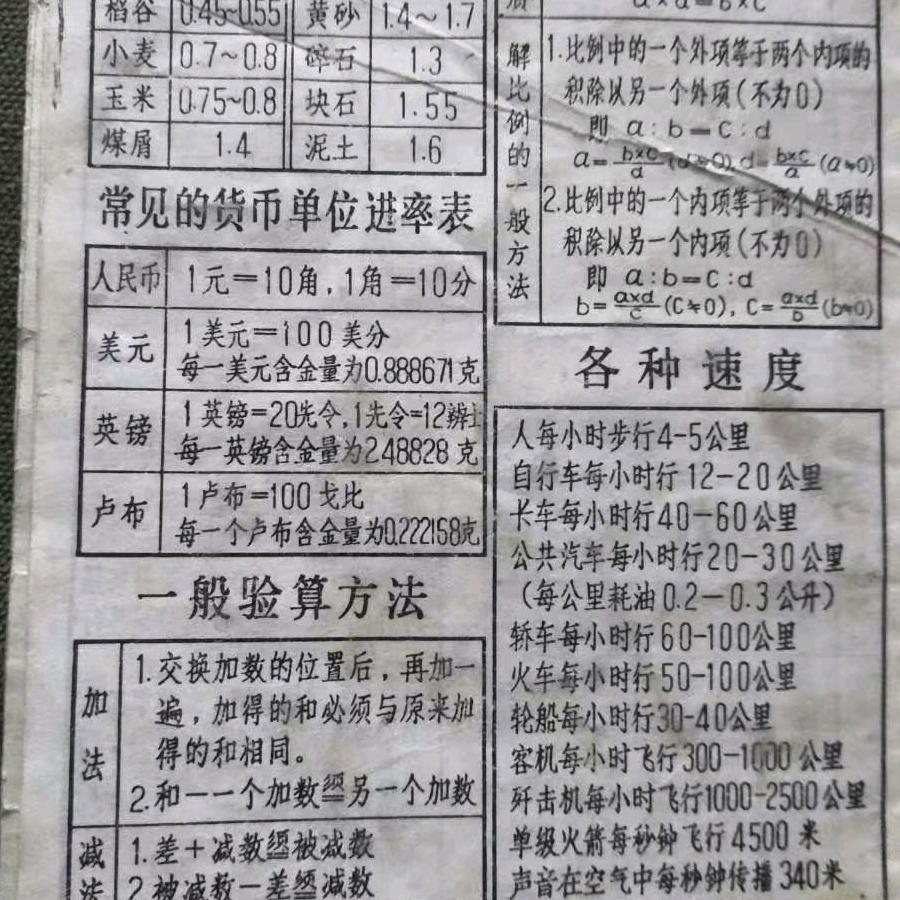 稻谷 0.45~0.55 黄砂 1.4~1.7
小麦 0.7~0.8 碎石 1.3
玉米 0.75~0.8 块石 1.55
煤屑 1.4 泥土 1.6
常见的货币单位进率表
人民币 1元=10角,1角=10分
美元 1美元=100美分
每一美元含金量为0.888671克
英镑 1英镑=20先令,1先令=12辨士
每一英镑含金量为2.48828克
卢布 1卢布=100戈比
每一个卢布含金量为0.222168克
一般验算方法
加法
1.交换加数的位置后,再加一
遍,加得的和必须与原来加
得的和相同。
2.和一一个加数 另一个加数
减法
1.差+减数 被减数
2.被减数一差 减数
a×d=b×c
解比例的一般方法
1.比例中的一个外项等于两个内项的
积除以另一个外项(不为0)
即 a:b=c:d
a=b×c/a (d≒0),d=b×c/a (a≒0)
2.比例中的一个内项等于两个外项的
积除以另一个内项(不为0)
即 a:b=c:d
b=a×d/c (C≒0), C=a×d/b (b≒0)
各种速度
人每小时步行4-5公里
自行车每小时行12-20公里
卡车每小时行40-60公里
公共汽车每小时行20-30公里
(每公里耗油0.2-0.3公升)
轿车每小时行60-100公里
火车每小时行50-100公里
轮船每小时行30-40公里
客机每小时飞行300-1000公里
歼击机每小时飞行1000-2500公里
单级火箭每秒钟飞行4500米
声音在空气中每秒钟传播340米